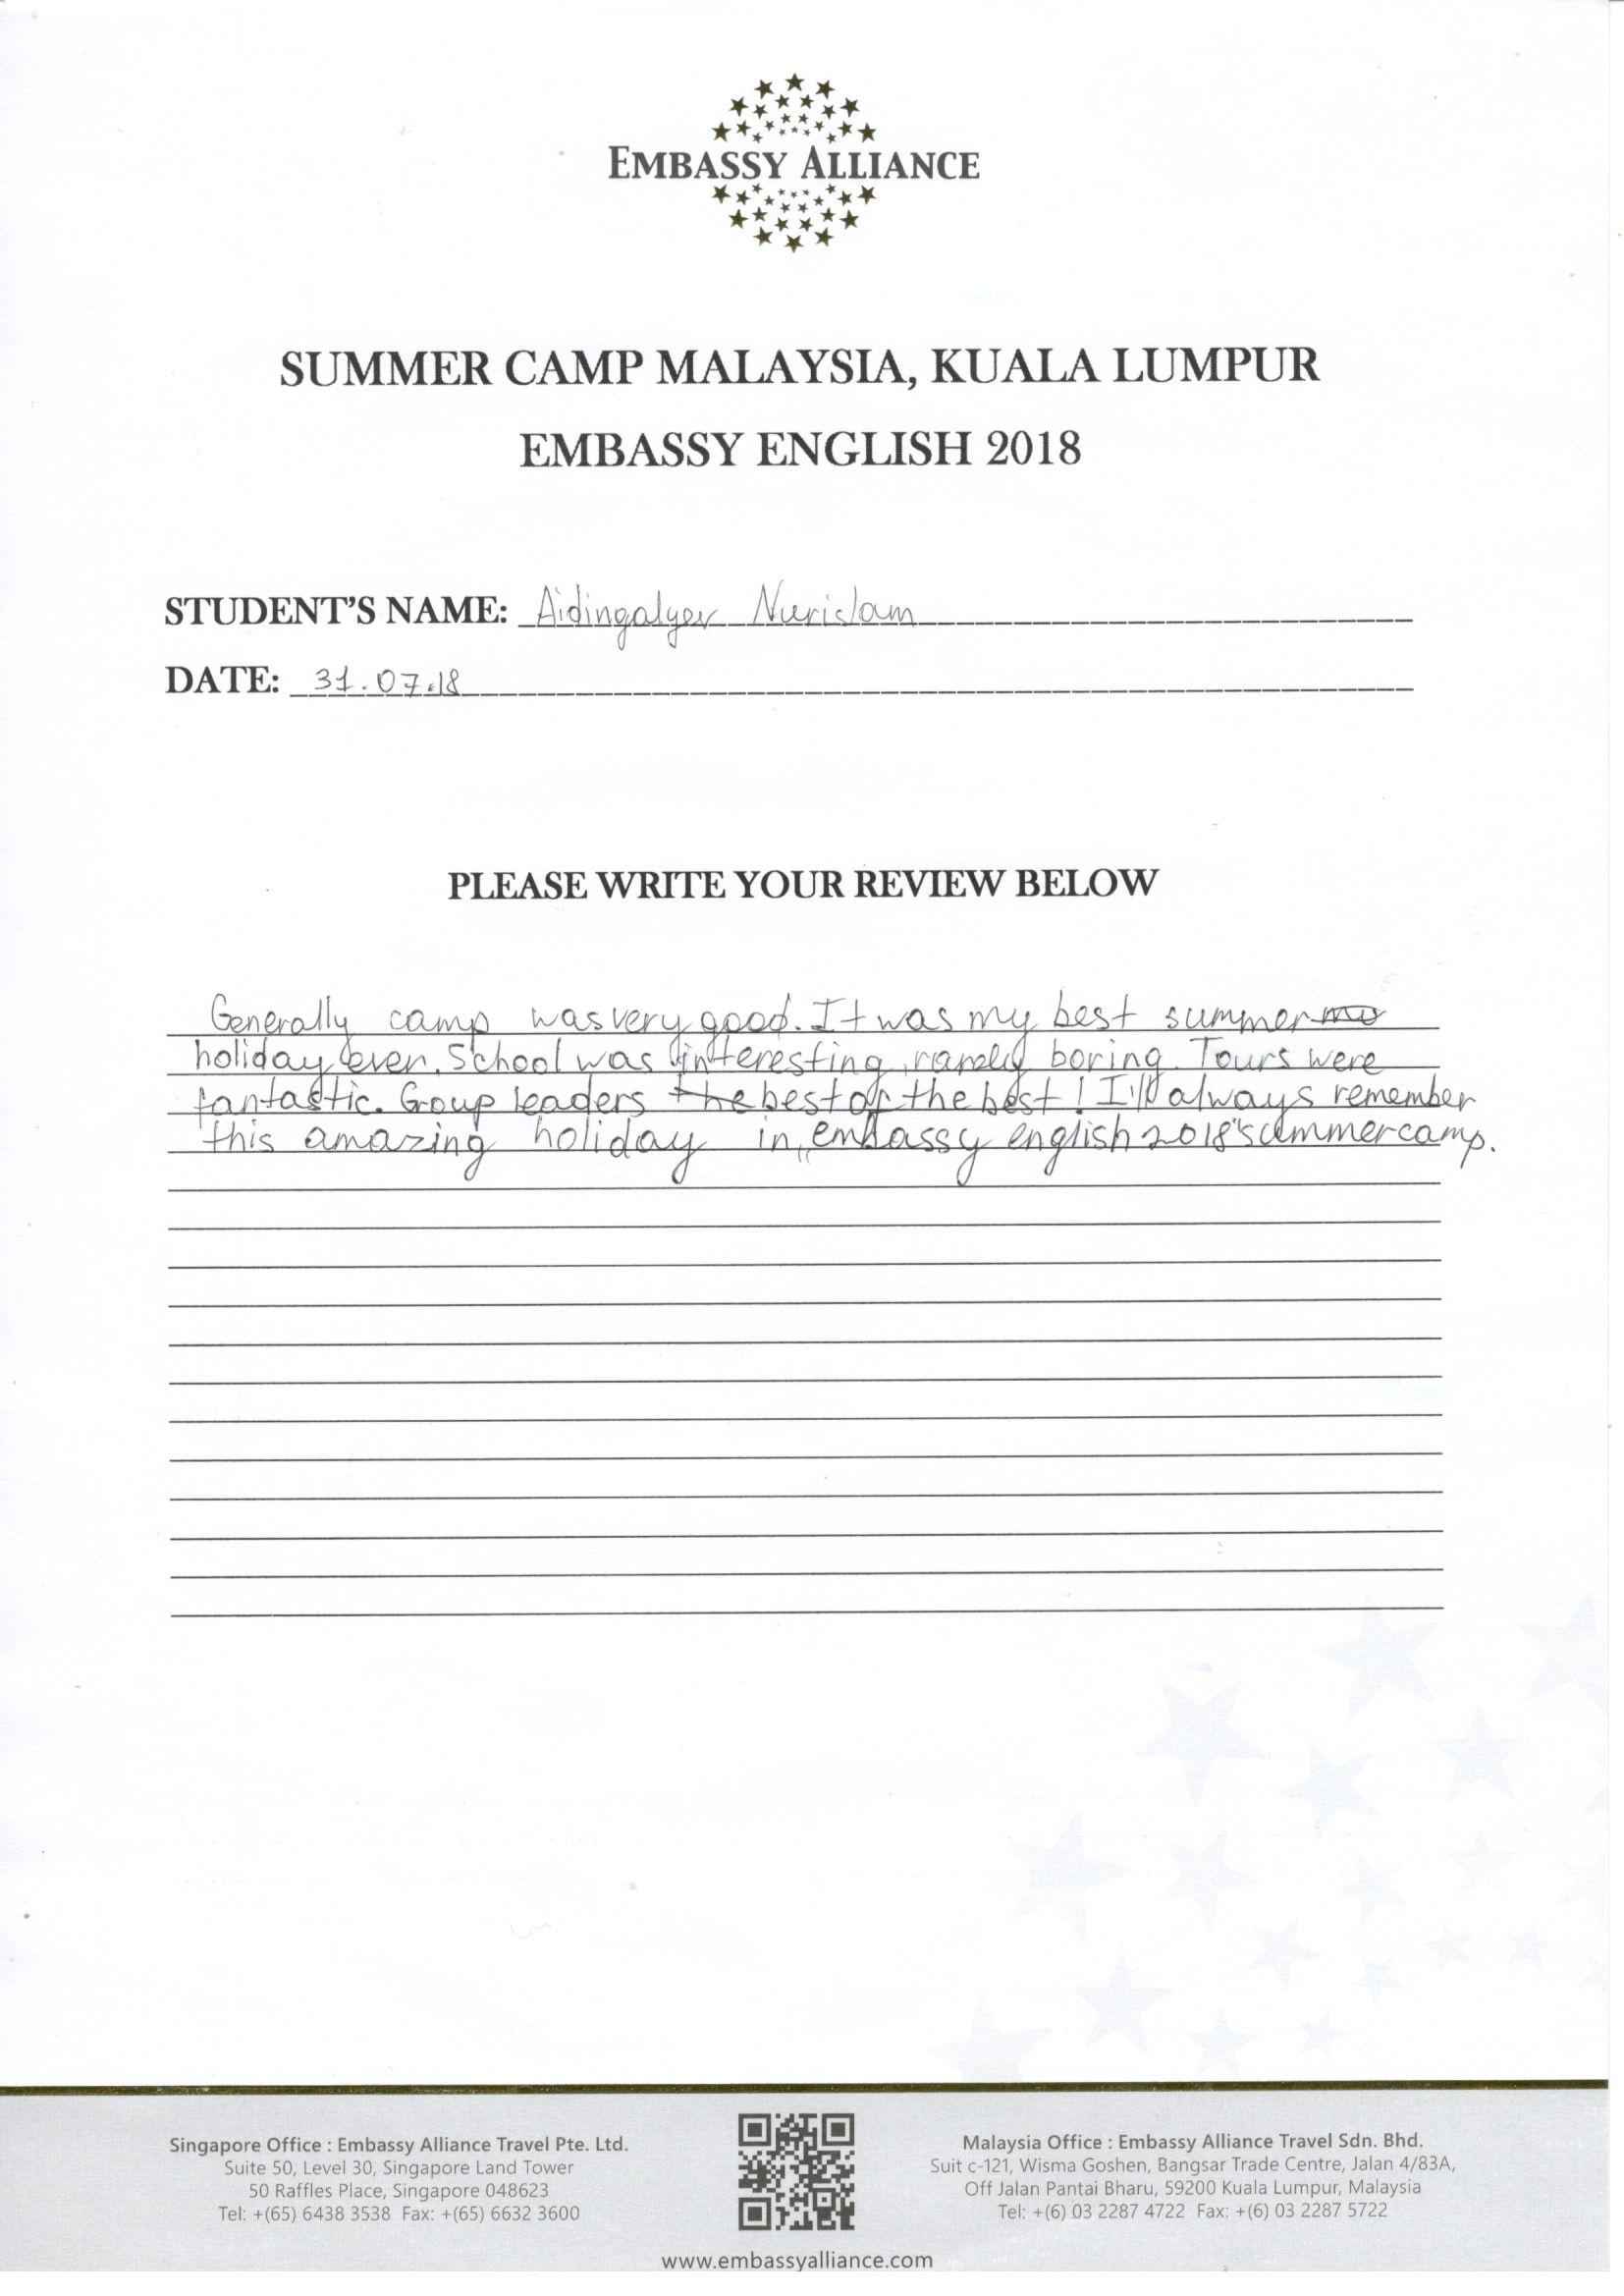 EMBASSY ALLIANCE
SUMMER CAMP MALAYSIA, KUALA LUMPUR
EMBASSY ENGLISH 2018
STUDENT'S NAME: Aidingalyev Nurislam
DATE: 31.07.18
PLEASE WRITE YOUR REVIEW BELOW
Generally camp was very good. It was my best summer
holiday ever. School was interesting, rarely boring. Tours were
fantastic. Group leaders the best of the best! I'll always remember
this amazing holiday in „embassy english 2018" summer camp.
Singapore Office : Embassy Alliance Travel Pte. Ltd.
Suite 50, Level 30, Singapore Land Tower
50 Raffles Place, Singapore 048623
Tel: +(65) 6438 3538 Fax: +(65) 6632 3600
Malaysia Office : Embassy Alliance Travel Sdn. Bhd.
Suit c-121, Wisma Goshen, Bangsar Trade Centre, Jalan 4/83A,
Off Jalan Pantai Bharu, 59200 Kuala Lumpur, Malaysia
Tel: +(6) 03 2287 4722 Fax: +(6) 03 2287 5722
www.embassyalliance.com